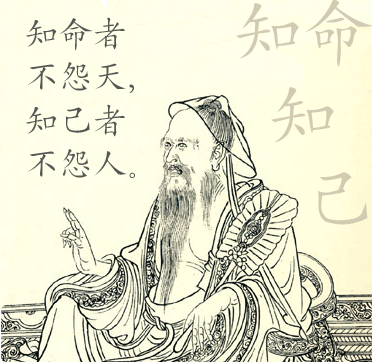 知命者
不怨天,
知己者
不怨人。
知命
知
己